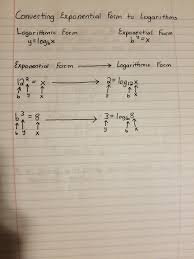 Converting Exponential Form to Logarithms
Logarithmic Form Exponential Form
y=log_b x b^y = x
Exponential Form → Logarithmic Form
12^2 = x → 2 = log_12 x
b y x y b x
b^3 = 8 → 3 = log_b 8
b y x y b x